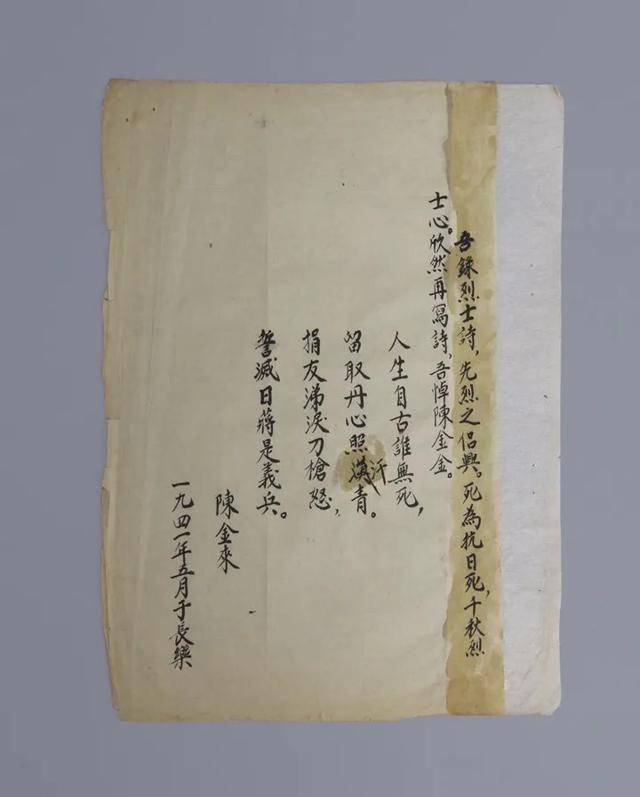 吾錄烈士詩，先烈之侶興。死為抗日死，千秋烈
士心。欣然再寫詩，吾悼陳金金。
人生自古誰無死，
留取丹心照漢汗青。
捐友涕淚刀槍怒，
誓滅日蔣是義兵。
陳金來
一九四一年五月于長樂